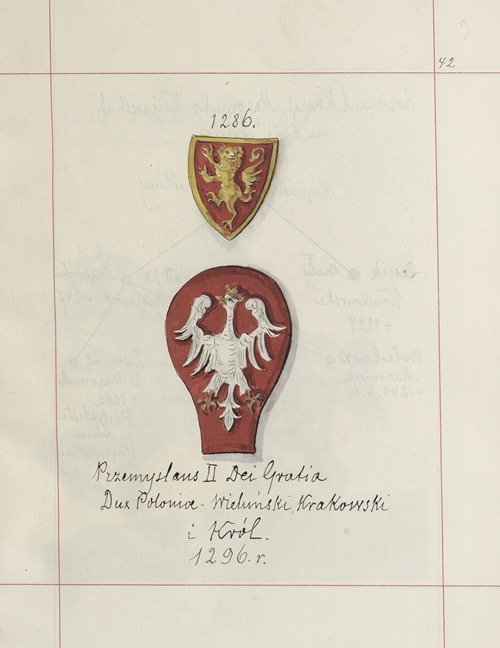 42
1286.
Przemyslaus II Dei Gratia
Dux Poloniæ - Wieluński, Krakowski
i Król.
1296.r.